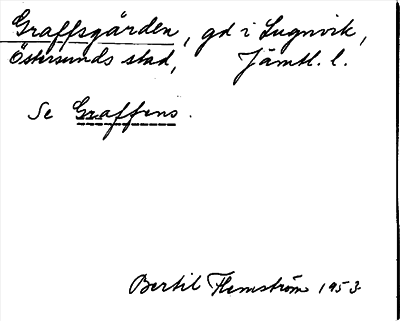 Graffsgården, gd i Lugnvik,
Östersunds stad, Jämtl. l.
Se Graffens.
Bertil Flemström 1953